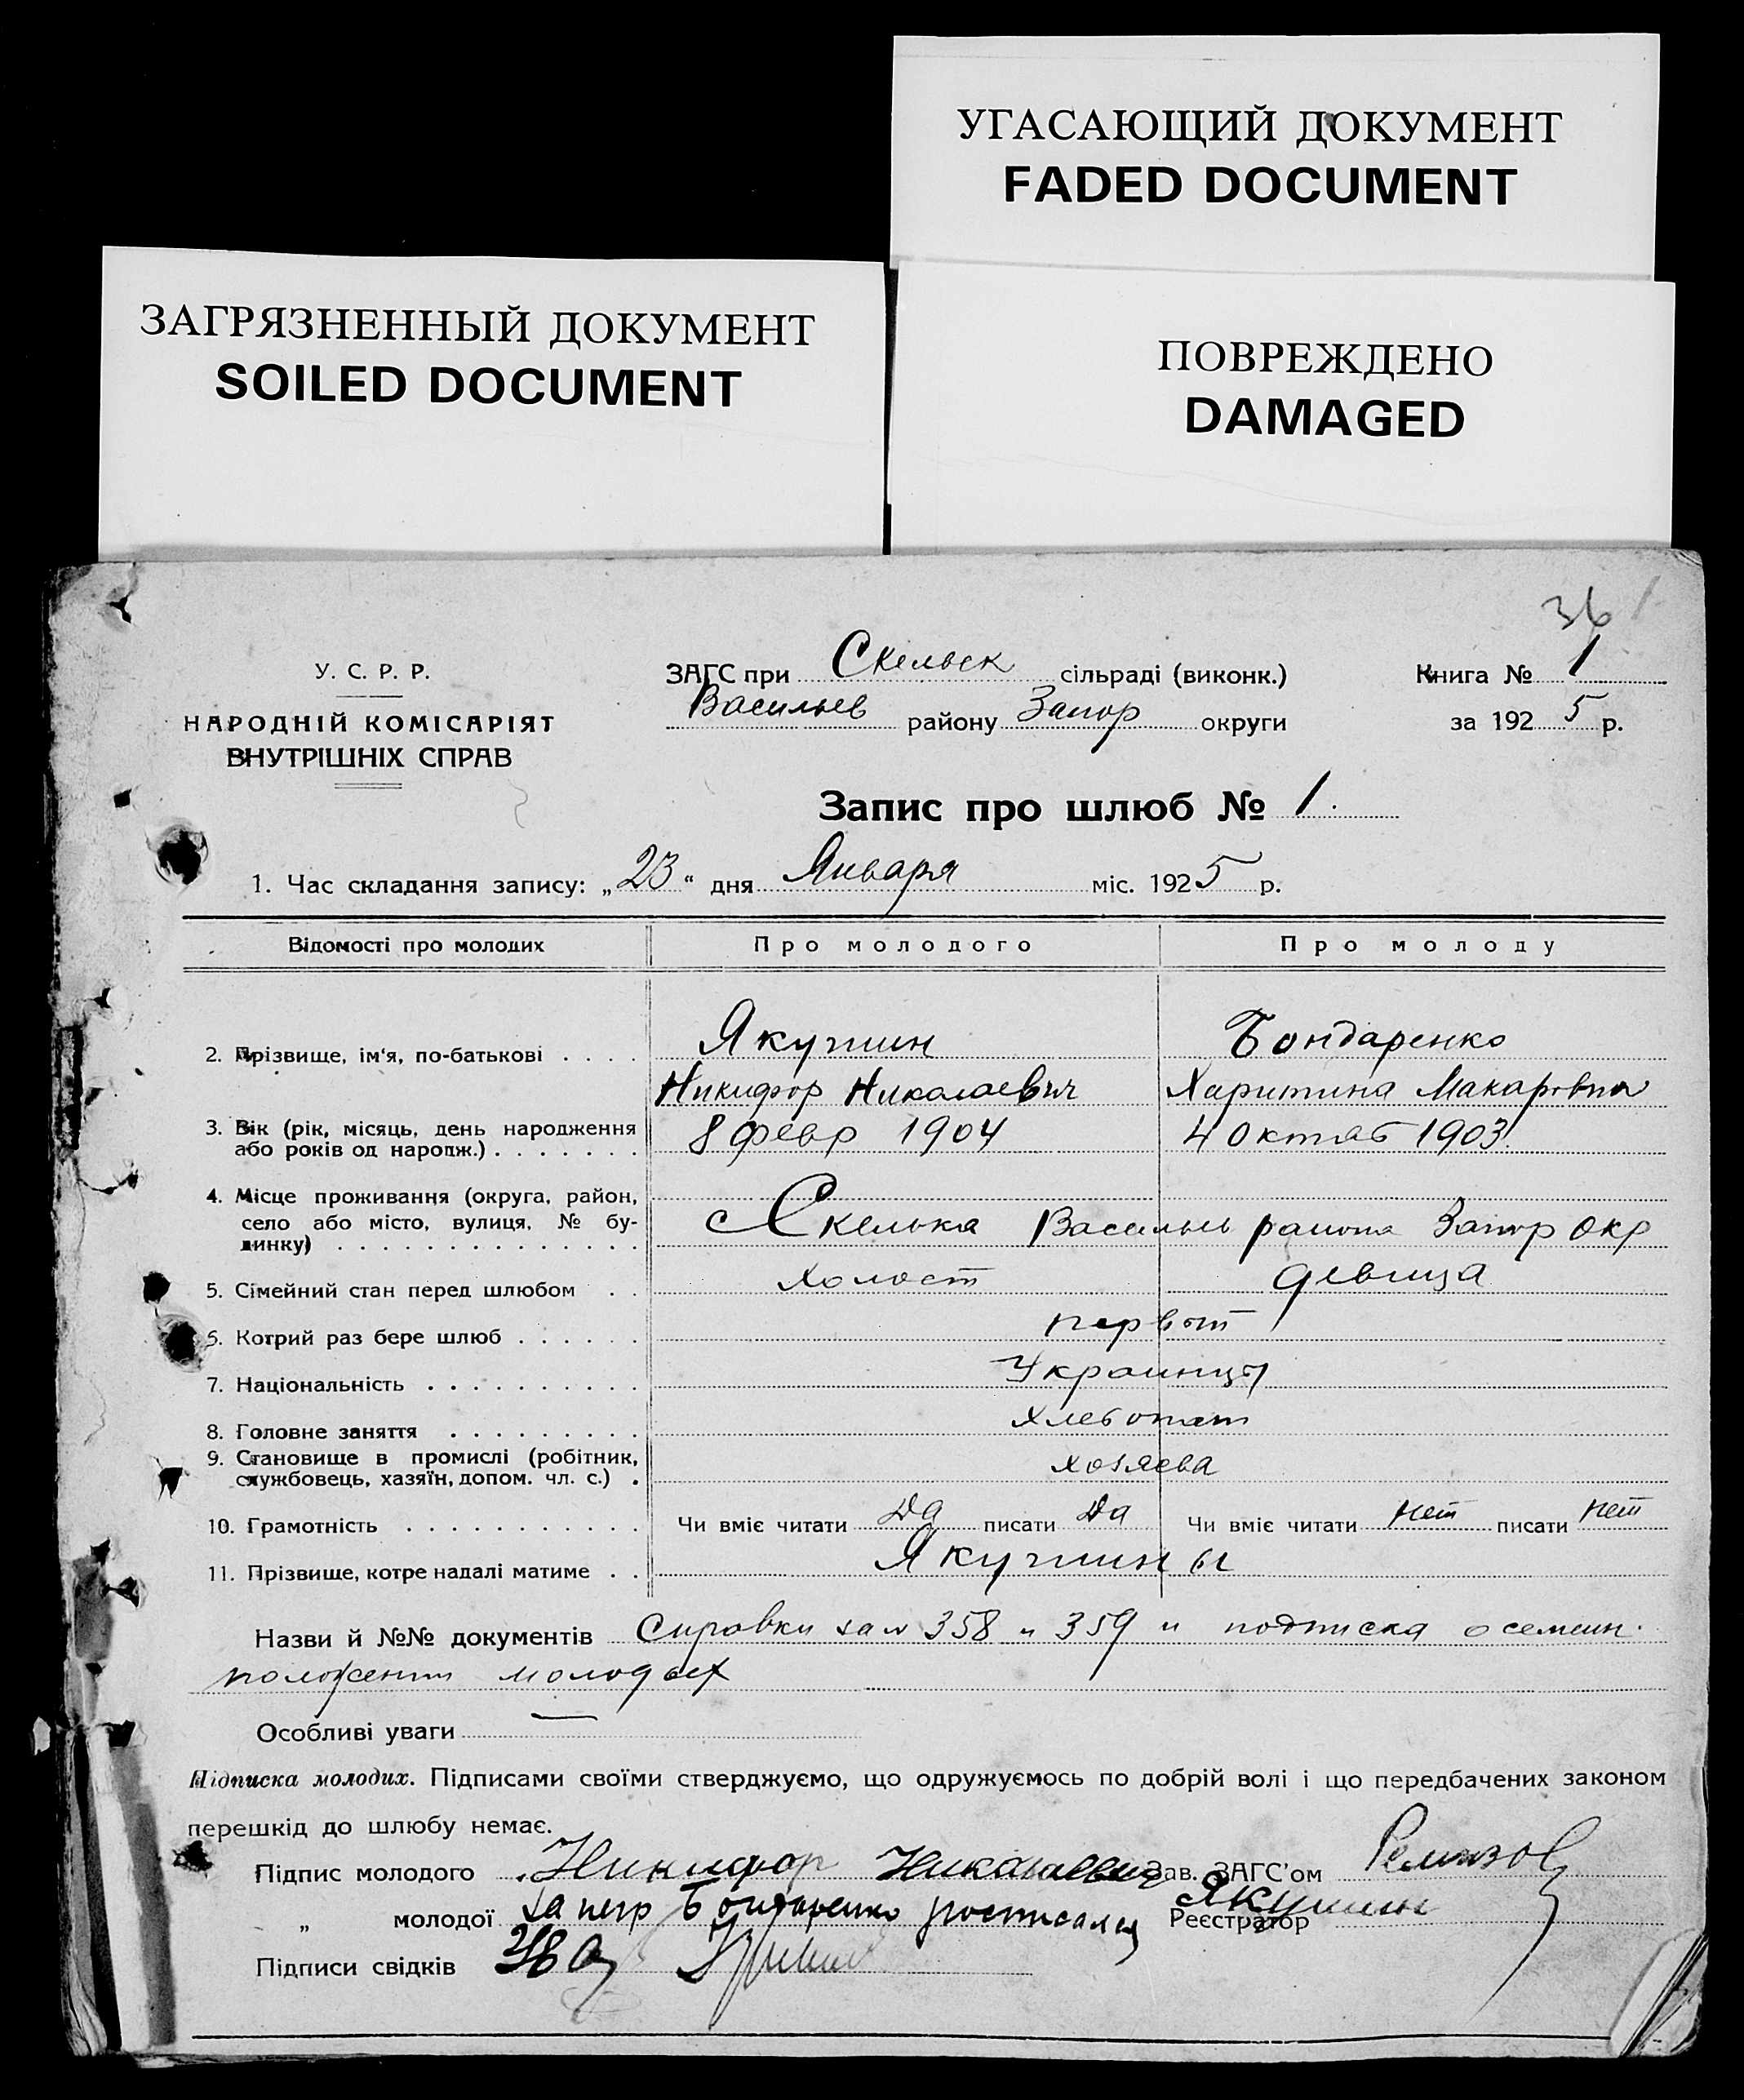 УГАСАЮЩИЙ ДОКУМЕНТ
FADED DOCUMENT
ЗАГРЯЗНЕННЫЙ ДОКУМЕНТ
SOILED DOCUMENT
ПОВРЕЖДЕНО
DAMAGED
36
У. С. Р. Р.
НАРОДНІЙ КОМІСАРІЯТ
ВНУТРІШНІХ СПРАВ
ЗАГС при Скельск сільраді (виконк.)
Васильев району Запор округи
Книга № 1
за 1925 р.
Запис про шлюб № 1.
1. Час складання запису: „23“ дня Января міс. 1925 р.
Відомості про молодих Про молодого Про молоду
2. Прізвище, ім‘я, по-батькові . . . . Якушин Бондаренко
Никифор Николаевич Харитина Макаровна
3. Вік (рік, місяць, день народження або років од народж.) . . . . . . . 8 февр 1904 4 Октяб 1903.
4. Місце проживання (округа, район, село або місто, вулиця, № будинку) . . . . . . . . . . . . . . Скелька Василев района Запор Окр
5. Сімейний стан перед шлюбом . . Холост девица
6. Котрий раз бере шлюб . . . . . .
7. Національність . . . . . . . . . . Украинцы
8. Головне заняття . . . . . . . . . Хлебопаш
9. Становище в промислі (робітник, службовець, хазяїн, допом. чл. с.) . хозяева
10. Грамотність . . . . . . . . . . . Чи вміє читати Да писати Да Чи вміє читати нет писати нет
11. Прізвище, котре надалі матиме . . Якушины
Назви й №№ документів Справки за № 358 и 359 и подписка о семейн.
положении молодых
Особливі уваги —
Підписка молодих. Підписами своїми стверджуємо, що одружуємось по добрій волі і що передбачених законом
перешкід до шлюбу немає.
Підпис молодого Никифор Николаевич Якушин
Зав. ЗАГС’ом
„ молодої За негр Бондаренко росписался
Реєстратор
Підписи свідків